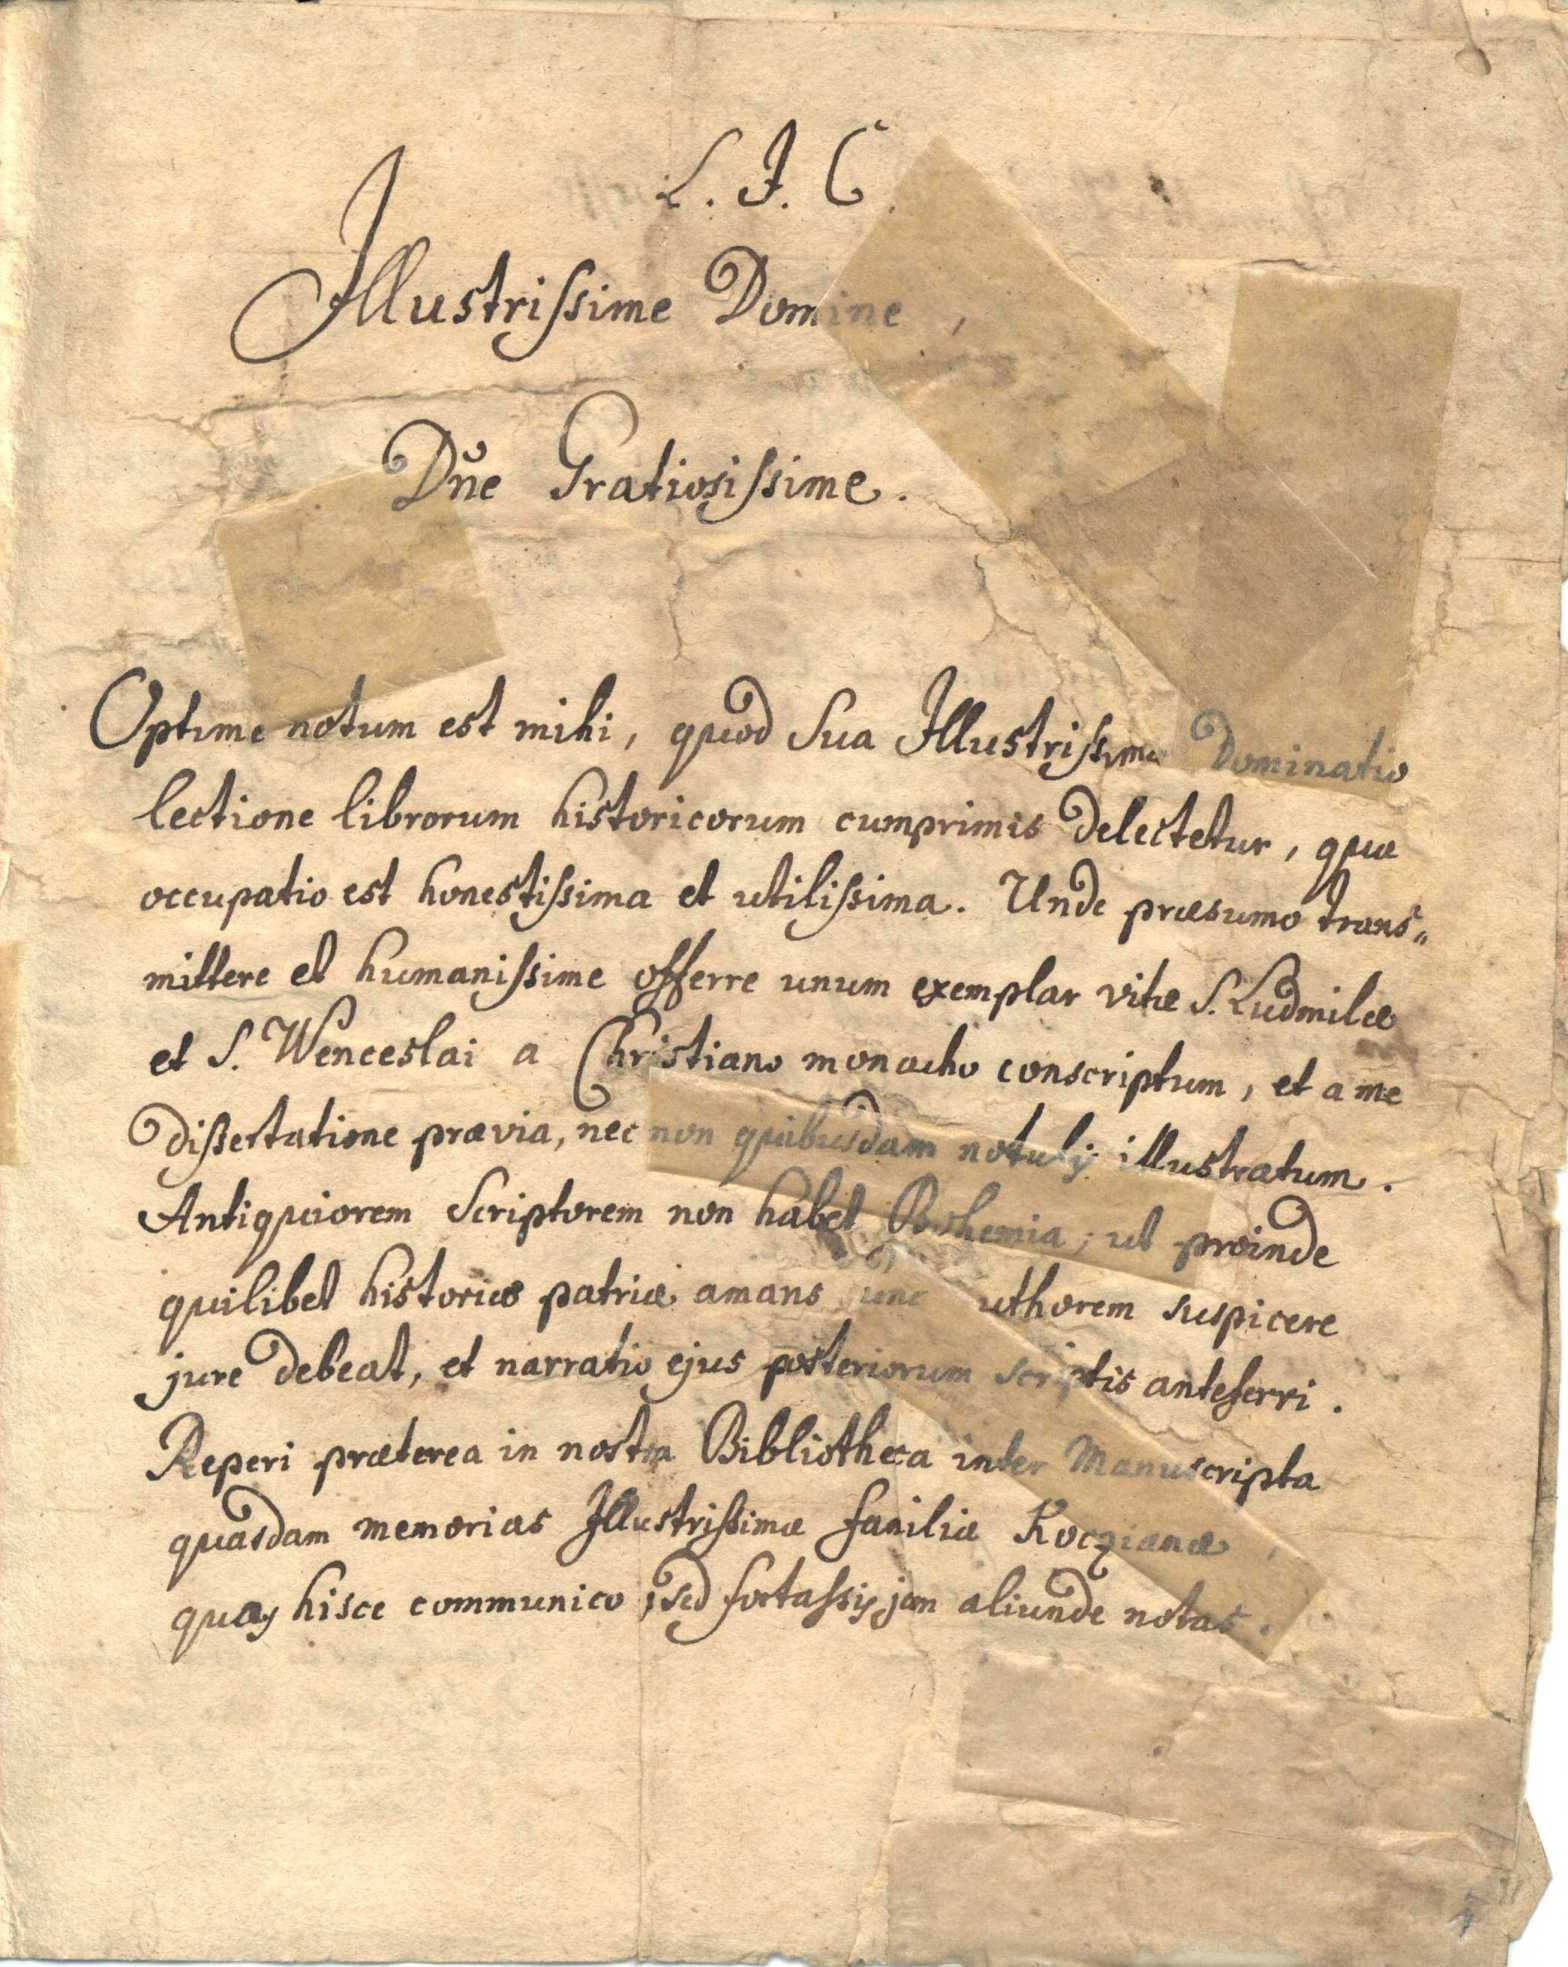 L. J. C.
Illustrissime Domine,
Dñe Gratiosissime.
Optime notum est mihi, quod Sua Illustrissima Dominatio
lectione librorum historicorum cumprimis delectetur, quæ
occupatio est honestissima et utilissima. Unde præsumo trans„
mittere et humanissime offerre unum exemplar vitæ S. Ludmilæ
et S. Wenceslai a Christiano monacho conscriptum, et a me
dissertatione prævia, nec non quibusdam notulis illustratum.
Antiquiorem Scriptorem non habet Bohemia; ut proinde
quilibet historiæ patriæ amans unc uthorem suspicere
jure debeat, et narratio ejus posteriorum scriptis anteferri.
Reperi præterea in nostra Bibliotheca inter Manuscripta
quasdam memorias Illustrissimæ familiæ Koczianæ,
quas hisce communico, sed fortassis jam aliunde notas.